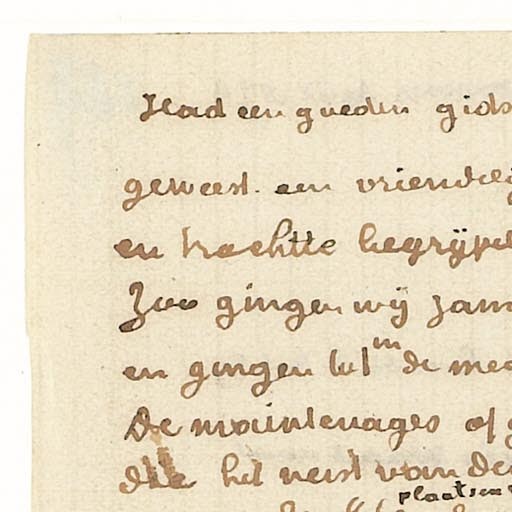 Had een goeden gids
geweest. een vriendelij
en trachtte begrijpe
Zoo gingen wij zam
en gingen tot de mee
De maintenages of g
die het verst van de
plaatsen